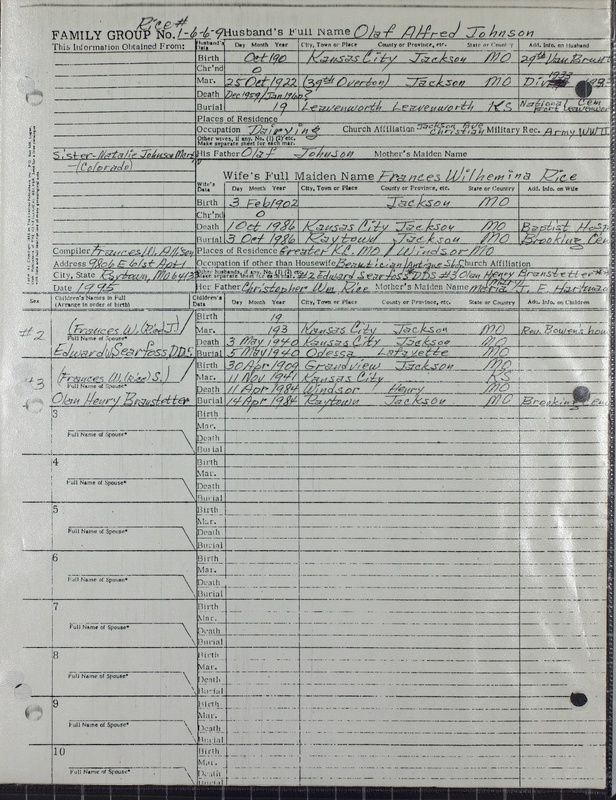 Rice #
FAMILY GROUP No. 1-6-6-9 Husband's Full Name Olaf Alfred Johnson
This Information Obtained From:
Husband's Data Day Month Year City, Town or Place County or Province, etc. State or Country Add. Info. on Husband
Birth Oct 190 Kansas City Jackson MO 29th Van Brunt
Chr'nd 0
Mar. 25 Oct 1922 (39th Overton) Jackson MO Div.
Death Dec 1959/Jan 1960?
Burial 19 Leavenworth Leavenworth KS National Cem Fort Leavenworth
Places of Residence
Occupation Dairying Church Affiliation Jackson Ave Christian Military Rec. Army WWI
Other wives, if any, No. (1) (2) etc. Make separate sheet for each mar.
Sister-Natalie Johnson
-(Colorado)
His Father Olaf Johnson Mother's Maiden Name
Wife's Full Maiden Name Frances Wilhemina Rice
Wife's Data Day Month Year City, Town or Place County or Province, etc. State or Country Add. Info. on Wife
Birth 3 Feb 1902 Jackson MO
Chr'nd 0
Death 1 Oct 1986 Kansas City Jackson MO Baptist Hosp
Burial 3 Oct 1986 Raytown Jackson MO Brooking Cem
Compiler Frances M. Allison Places of Residence Greater KC, MO / Windsor MO
Address 9806 E 61st Apt 1 Occupation if other than Housewife Beautician Antique Sh Church Affiliation
City, State Raytown, Mo 64133 #2 Edward Searfoss DDS #3 Olan Henry Branstetter
Date 1995 Her Father Christopher Wm Rice Mother's Maiden Name Maria J. E.
Sex Children's Names in Full (Arrange in order of birth) Children's Data Day Month Year City, Town or Place County or Province, etc. State or Country Add. Info. on Children
Birth 19
#2 (Frances W. (Rice) J.) Mar. 193 Kansas City Jackson MO Rev. Bowen's hou
Full Name of Spouse* Death 3 May 1940 Kansas City Jackson MO
Edward W Searfoss DDS Burial 5 May 1940 Odessa Lafayette MO
Birth 30 Apr 1909 Grandview Jackson MO
#3 (Frances W. (Rice) S.) Mar. 11 Nov 1941 Kansas City KS
Full Name of Spouse* Death 11 Apr 1984 Windsor Henry MO
Olan Henry Branstetter Burial 14 Apr 1984 Raytown Jackson MO Brooking Cem
3 Birth
Mar.
Full Name of Spouse* Death
Burial
4 Birth
Mar.
Full Name of Spouse* Death
Burial
5 Birth
Mar.
Full Name of Spouse* Death
Burial
6 Birth
Mar.
Full Name of Spouse* Death
Burial
7 Birth
Mar.
Full Name of Spouse* Death
Burial
8 Birth
Mar.
Full Name of Spouse* Death
Burial
9 Birth
Mar.
Full Name of Spouse* Death
Burial
10 Birth
Mar.
Full Name of Spouse* Death
Burial